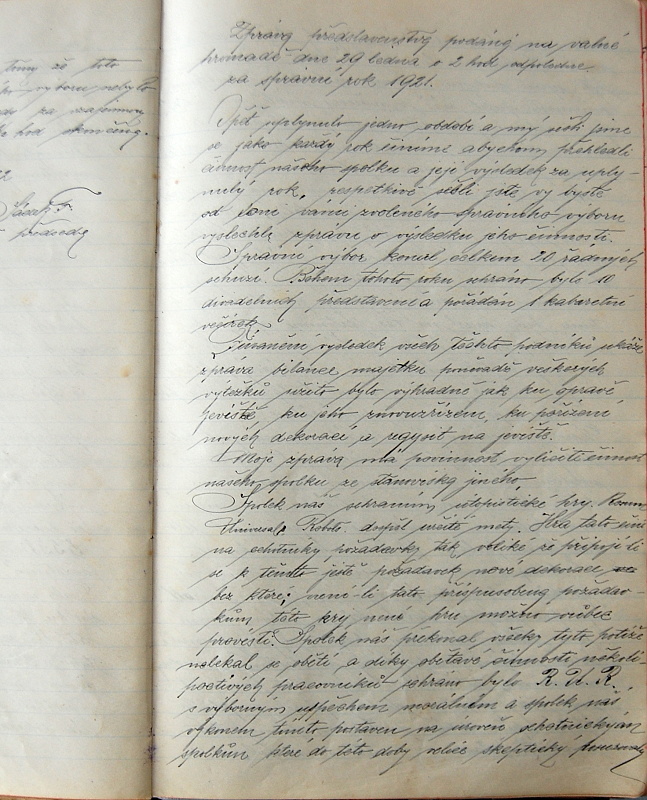 tomu že toto
výboru nebylo
do za zájmem
skončena.
předseda
Zpráva představenstva podaná na valné
hromadě dne 29 ledna o 2 hod odpoledne
za správní rok 1921.
Opět uplynulo jedno období a my sešli jsme
se jako každý rok činíme abychom přehlédli
činnost našeho spolku a její výsledek za uply-
nulý rok, respektivě sešli jste vy byste
od Vámi zvoleného správního výboru
vyslechli zprávu o výsledku jeho činnosti.
Správní výbor konal celkem 20 řádných
schůzí. Během tohoto roku sehráno bylo 10
divadelních představení a pořádán 1 kabaretní
večírek.
Finanční výsledek všech těchto podniků ukáže
zpráva bilance majetku poněvadž veškerých
výtěžků užito bylo výhradně jak ku opravě
jeviště ku jeho znovuzřízení, ku pořízení
nových dekorací a regysit na jeviště.
Moje zpráva má povinnost vylíčiti činnost
našeho spolku ze stanoviska jiného.
Spolek náš sehráním utopistické hry. Rossum
Universal Robots. dospěl určité mety. Hra tato činí
na ochotníky požadavky tak veliké že připojí-li
se k těmto ještě požadavek nové dekorace
bez které; není-li tato přizpůsobena požadav-
kům této hry není hru možno vůbec
provésti. Spolek náš překonal všecky tyto potíže
nelekal se obětí a díky obětavé činnosti několi
poctivých pracovníků sehráno bylo R. U. R.
s výborným úspěchem morálním a spolek náš
výkonem tímto postaven na úroveň ochotnickým
spolkům které do této doby velice skepticky